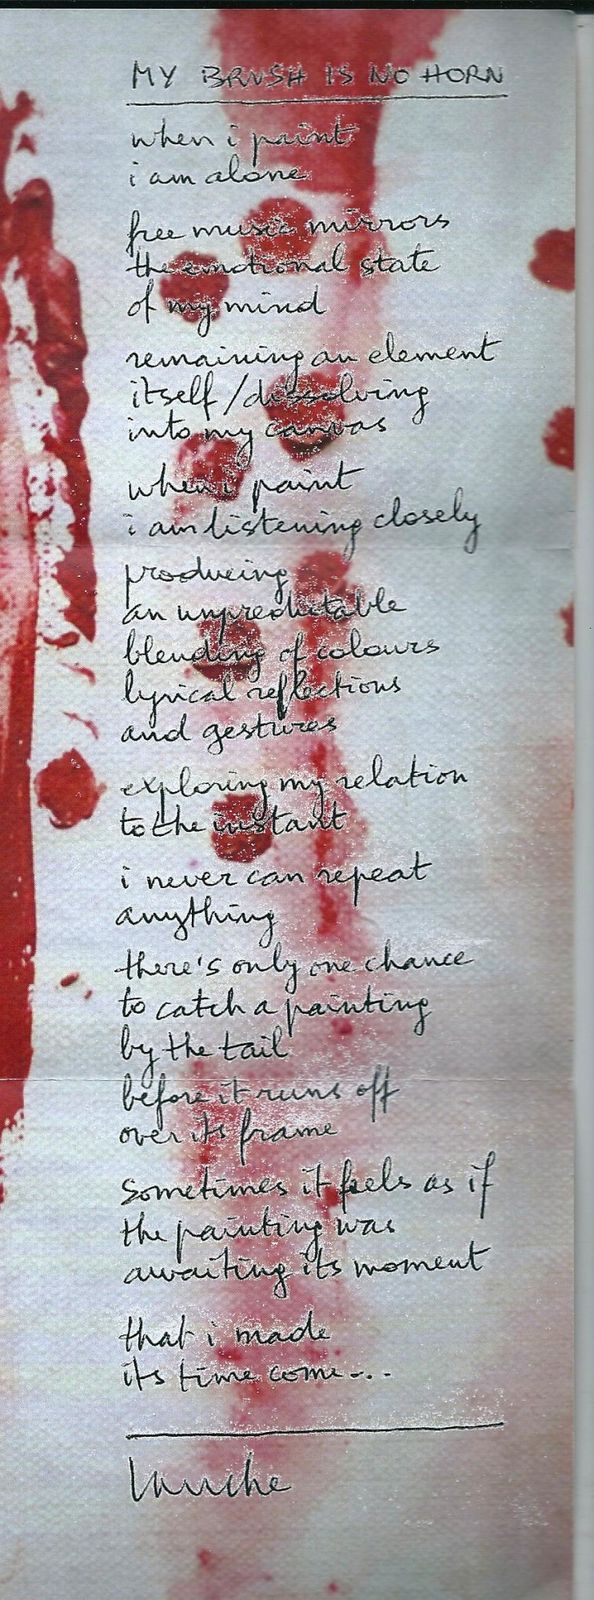 MY BRUSH IS NO HORN
when i paint
i am alone
free music mirrors
the emotional state
of my mind
remaining an element
itself / dissolving
into my canvas
when i paint
i am listening closely
producing
an unpredictable
blending of colours
lyrical reflections
and gestures
exploring my relation
to the instant
i never can repeat
anything
there's only one chance
to catch a painting
by the tail
before it runs off
over its frame
sometimes it feels as if
the painting was
awaiting its moment
that i made
its time come...